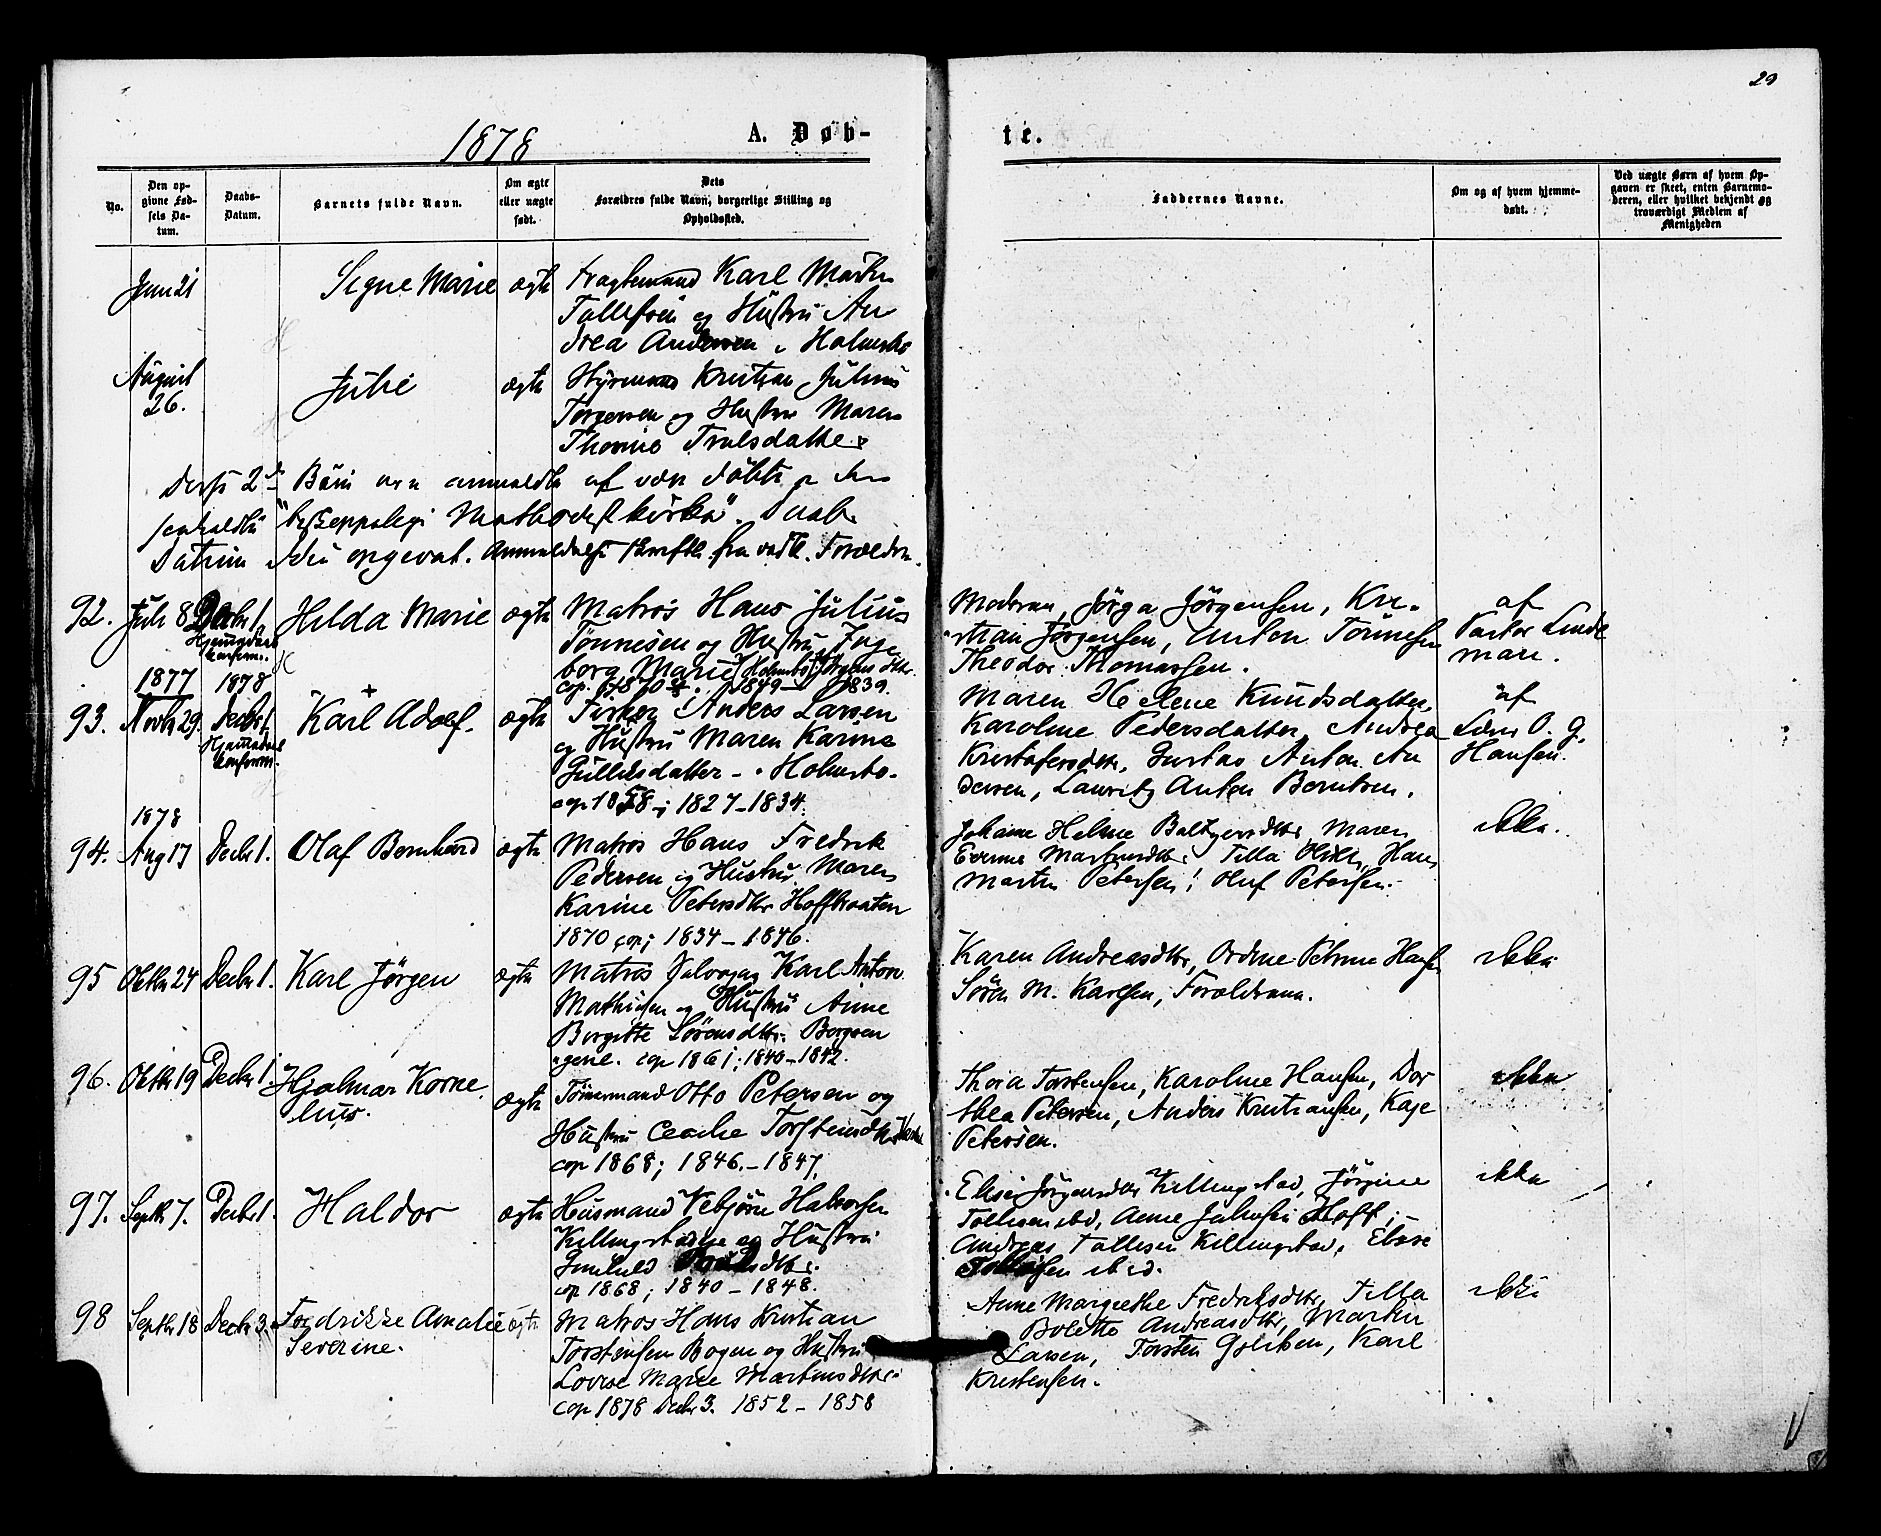 29
1878
A. Døb-
te.
No.
Den op-
givne Fød-
sels Da-
tum.
Daabs-
Datum.
Barnets fulde Navn.
Om ægte
eller uægte
født.
Dets
Forældres fulde Navn, borgerlige Stilling og
Opholdssted.
Faddernes Navne.
Om og af hvem hjemme-
døbt.
Ved uægte Børn af hvem Op-
gaven er skeet, enten Barnemo-
deren, eller hvilket bekjendt og
troværdigt Medlem af
Menigheden
Juni 21
Signe Marie
ægte
Fragtemand Karl Martin
Tollefsen og Hustru An
drea Andersen
August
26.
Julie
ægte
Styrmand Kristian Julius
Torgersen og Hustru Maren
Thorine Trulsdatter
Disse 2de Børn ere anmeldte af være døbte
"biskoppelige Methodistkirke". Daabs
Datum ikke opgivet. Anmeldelse fra Forældre.
92.
Juli 8
Decbr 1.
Hjemmedaab
konfirm.
Hilda Marie
ægte
Matros Hans Julius
Tønnesen og Hustru Inge
borg Marie Jørgensdtr
cop. 1870 1849 1839.
Moderen, Jørga Jørgensen, Kri-
stian Jørgensen, Anton Tönnesen
Theodor Thomassen.
af
Pastor Linde
man.
1877
1878
93.
Novbr 29.
Decbr 1.
Hjemmedaab
konfirm.
Karl Adolf.
ægte
Fisker Anders Larsen
og Hustru Maren Karine
Gulliksdatter - Holmsbo.
cop 1858; 1827-1834.
Maren Helene Knudsdatter,
Karoline Pedersdatter, Andrea
Kristofersdtr, Gustav Anton An
dersen, Lauritz Anton Berntsen.
af
O. G.
Hansen.
1878
94.
Aug 17
Decbr 1.
Olaf Bernhard
ægte
Matros Hans Fredrik
Pedersen og Hustru Maren
Karine Petersdtr
1870 cop; 1834-1846.
Johanne Helene Maren
Martinsdtr. Tilla Hans
Martin Petersen; Oluf Petersen.
ikke.
95
Oktbr 24
Decbr 1.
Karl Jörgen
ægte
Matros Karl Anton
Mathisen og Hustru Anne
Birgitte Sørensdtr.
cop 1861; 1840-1842.
Karen Andreasdtr, Ordine Petrine Hansen
Sören M. Karlsen, Forældrene.
ikke
96.
Oktbr 19
Decbr 1
Hjalmar Korne
lius.
ægte
Tömmermand Otto Petersen og
Hustru Cecilie Torstensdtr
cop 1868; 1846.-1847.
Thora Torstensen, Karoline Hansen, Dor
thea Petersen, Anders Kristiansen, Kaje
Petersen.
ikke
97.
Septbr 7.
Decbr 1.
Haldor
ægte
Husmand Vebjørn Halvorsen
Killingstadeje og Hustru
Gunhild
cop 1868; 1840-1848.
Elise Jörgensdtr Killingstad, Jörgine
Tollefsen ibid, Anne Hoff;
Andreas Tollefsen Killingstad, Elise
Tollefsen ibid.
ikke
98
Septbr 18
Decbr 3.
Fredrikke Amalie
Severine.
ægte
Matros Hans Kristian
Torstensen Bogen og Hustru
Lovise Marie Martinsdtr
cop 1878 Decbr 3. 1852-1858
Anne Margrethe Fredriksdtr, Tilla
Bolette Andreasdtr, Martin
Larsen, Torsten Karl
Kristensen.
ikke